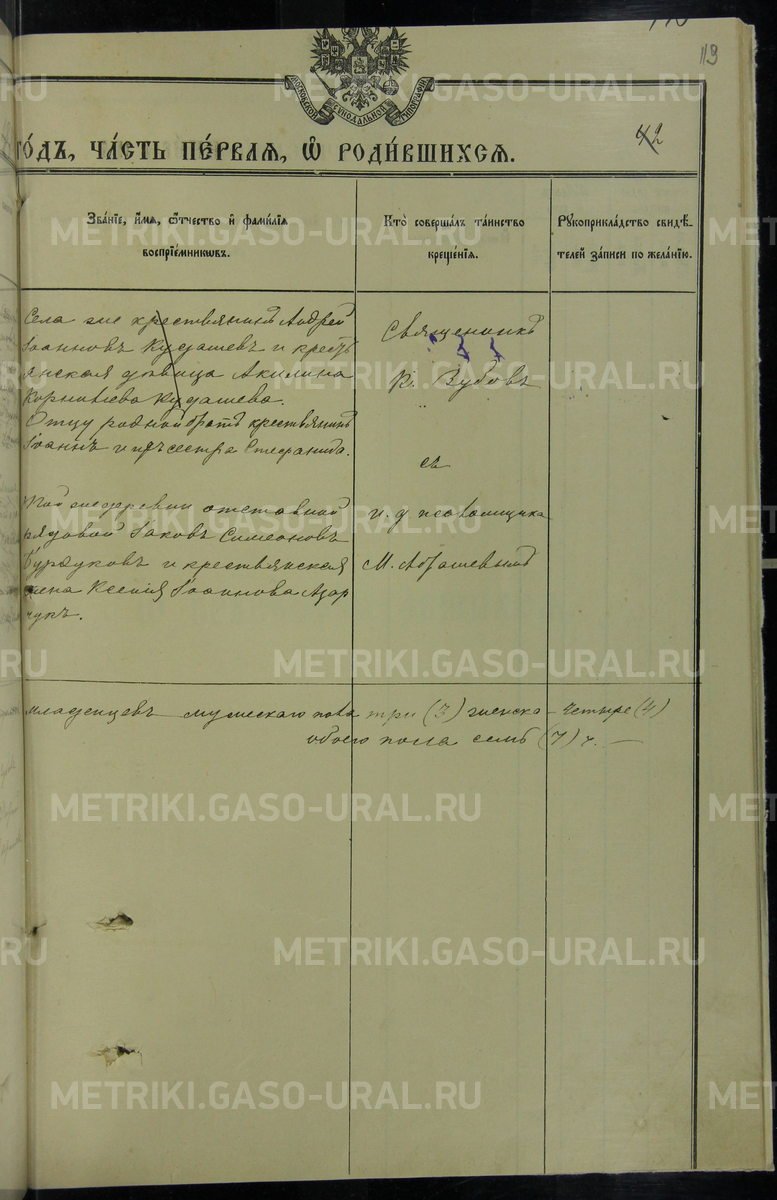 113
МОСКОВСКОЙ СѴНОДАЛЬНОЙ ТИПОГРАФІИ
42
ГО́ДЪ, ЧА́СТЬ ПЕ́РВАЯ, Ѽ РОДИ́ВШИХСЯ.
Зва́нїе, и́мя, ѻ҆́тчество и҆ фами́лїя
воспрїе́мникѡвъ.
Кто̀ соверша́лъ та́инство
креще́нїя.
Рꙋкоприкла́дство свидѣ́-
телей за́писи по жела́нїю.
Села же крестьянинъ Андрей
Іоанновъ Кудашевъ и кресть
янская дѣвица Акилина
Корнилiева Кудашева.
Отцу родной братъ крестьянинъ
Іоаннъ и сестра Стефанида.
Той же деревни отставной
рядовой Іаковъ Симеоновъ
Бурдуковъ и крестьянская
жена Ксенія Іоаннова Азар
чукъ.
Священникъ
К. Зубовъ
съ
и. д. псаломщика
М. Абрашевымъ
младенцевъ мужескаго пола три (3) женска — четыре (4)
обоего пола семь (7) ч. —
METRIKI.GASO-URAL.RU